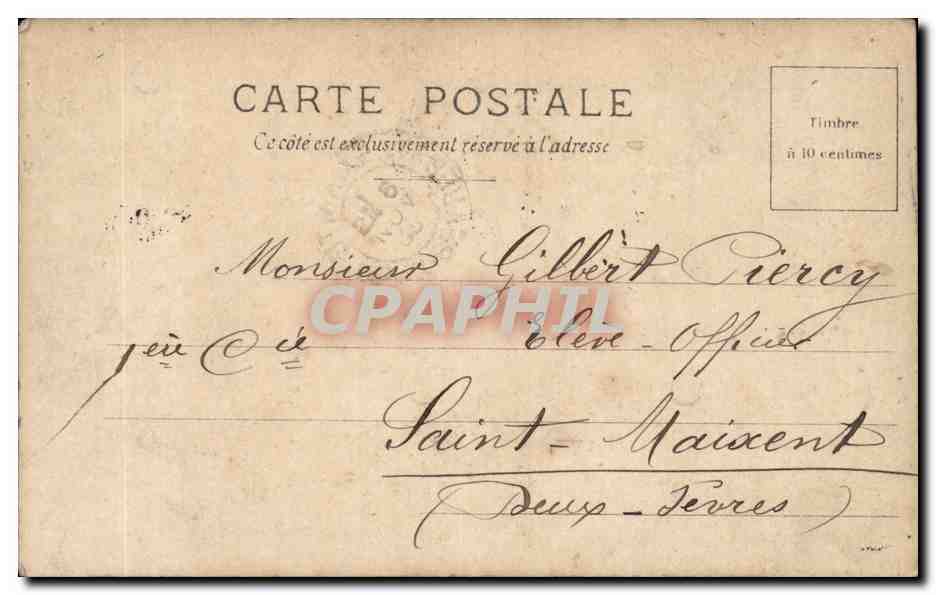 CARTE POSTALE
Ce côté est exclusivement réservé à l'adresse
Timbre
à 10 centimes
Monsieur Gilbert Piercy
CPAPHIL
1ère Cie Elève - Officier
Saint-Maixent
(Deux-Sèvres)